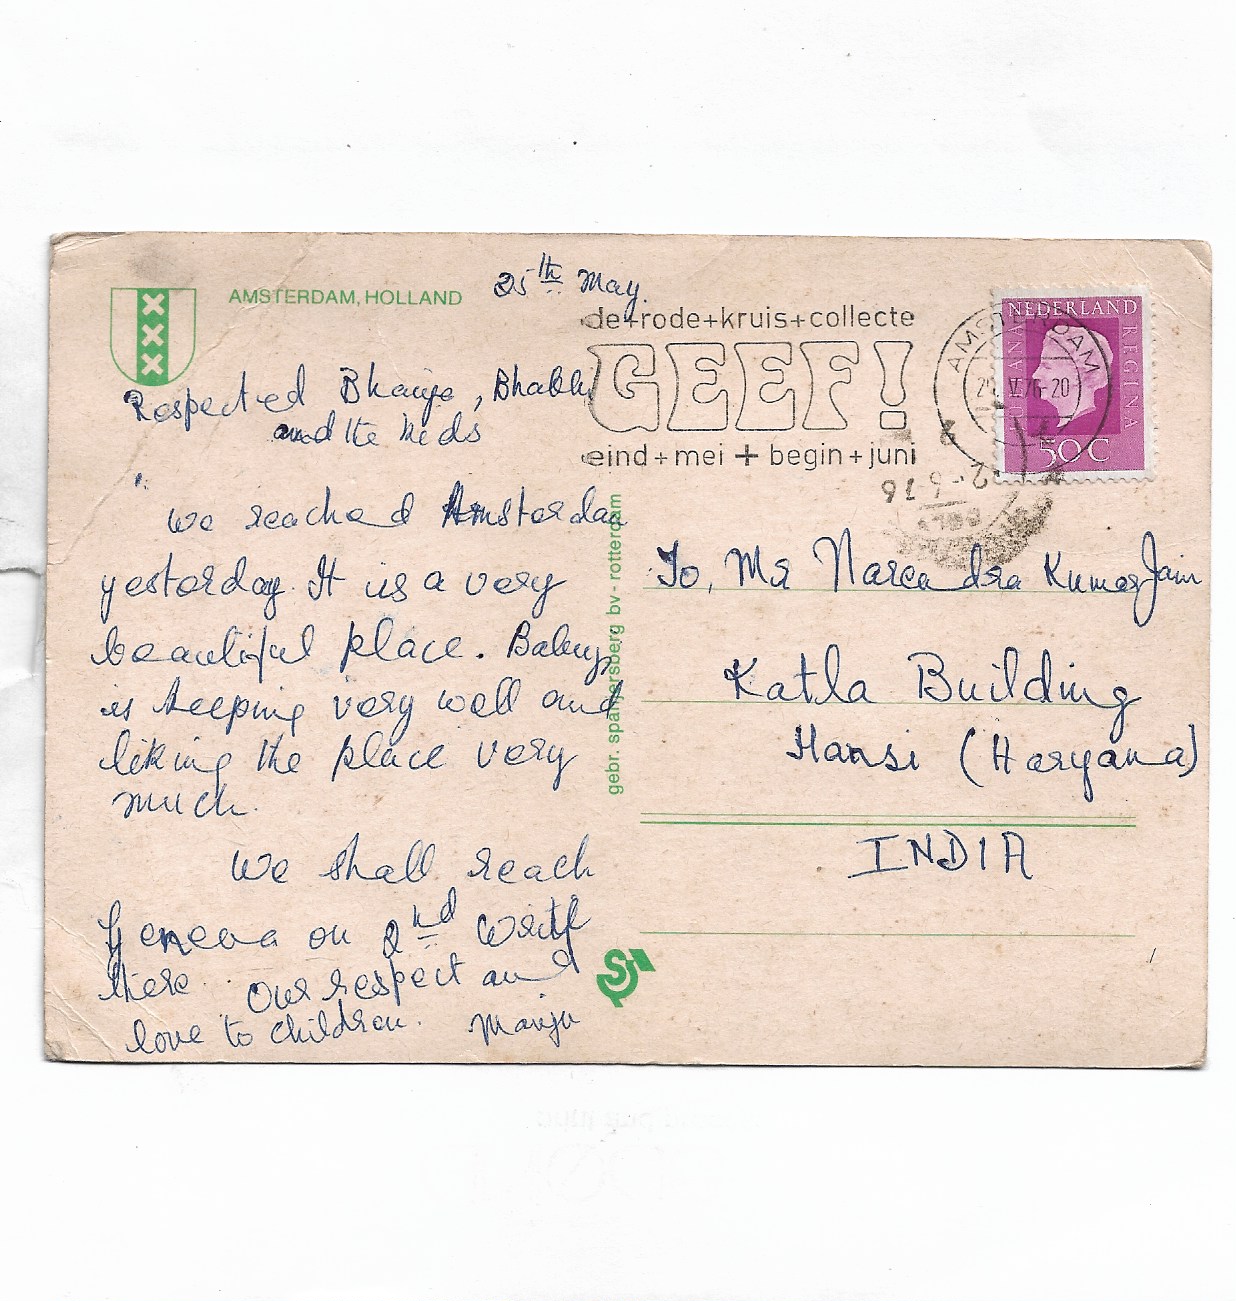 AMSTERDAM, HOLLAND
25th May.
de+rode+kruis+collecte
GEEF!
eind+mei+begin+juni
AMSTERDAM
NEDERLAND
JULIANA REGINA
50C
Respected Bhaiya, Bhabhi
and the kids
We reached Amsterdam
yesterday. It is a very
beautiful place. Baby
is keeping very well and
liking the place very
much.
We shall reach
Geneva on 2nd Write
there. Our respect and
love to children. Manju
gebr. spanjersberg bv - rotterdam
To, Mr Narendra Kumar Jain
Katla Building
Hansi (Haryana)
INDIA